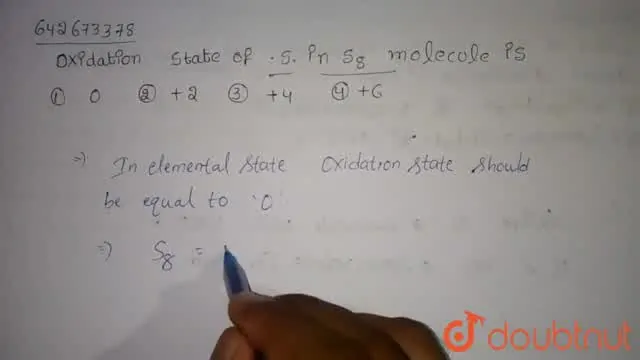 642673378
Oxidation state of .S. in S8 molecole is
① 0 ② +2 ③ +4 ④ +6
⇒ In elemental state Oxidation state should
be equal to '0'
⇒ S8 =
doubtnut